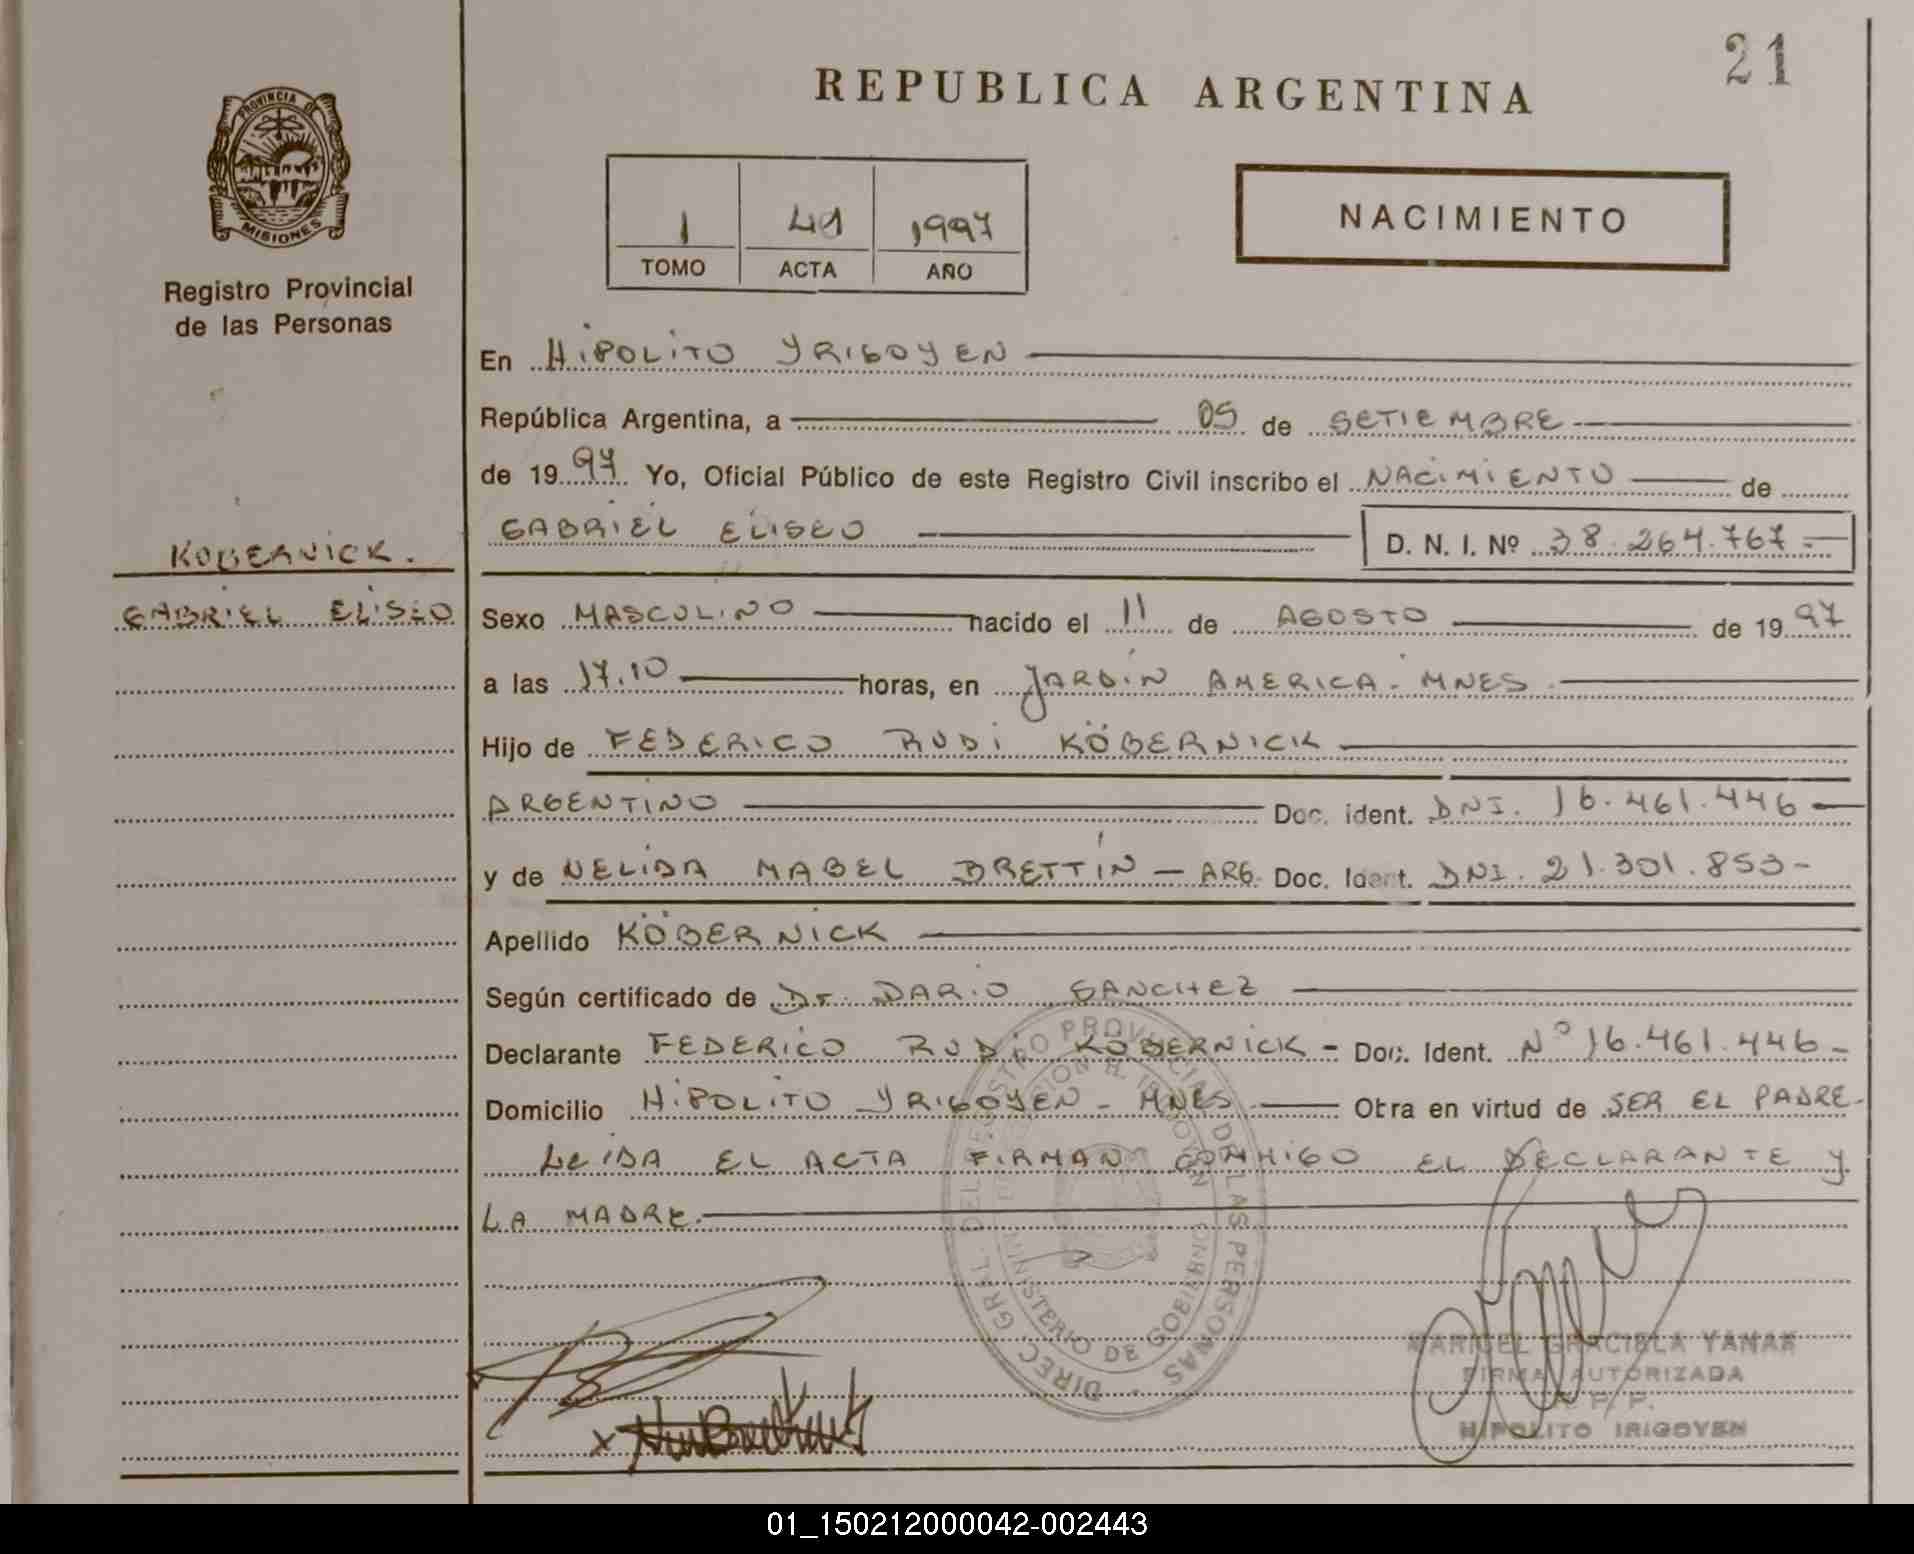 21
REPUBLICA ARGENTINA
PROVINCIA DE
MISIONES
Registro Provincial
de las Personas
1 41 1997
TOMO ACTA AÑO
NACIMIENTO
En HIPOLITO YRIGOYEN
República Argentina, a 05 de SETIEMBRE
de 1997 Yo, Oficial Público de este Registro Civil inscribo el NACIMIENTO de
GABRIEL ELISEO D. N. I. Nº 38.264.767.-
KOBERNICK.
GABRIEL ELISEO
Sexo MASCULINO nacido el 11 de AGOSTO de 1997
a las 17.10 horas, en JARDIN AMERICA - MNES.
Hijo de FEDERICO RUDI KÖBERNICK
ARGENTINO Doc. ident. DNI. 16.461.446
y de NELIDA MABEL BRETTÍN - ARG. Doc. Ident. DNI. 21.301.853-
Apellido KÖBERNICK
Según certificado de Dr. DARIO SANCHEZ
Declarante FEDERICO RUDI KOBERNICK - Doc. Ident. Nº 16.461.446-
Domicilio HIPOLITO YRIGOYEN - MNES. Obra en virtud de SER EL PADRE-
LEIDA EL ACTA FIRMAN CONMIGO EL DECLARANTE Y
LA MADRE.
DIREC. GRAL. DEL REGISTRO PROVINCIAL DE LAS PERSONAS
MINISTERIO DE GOBIERNO
MARICEL GRACIELA YANAK
FIRMA AUTORIZADA
R. P. P.
HIPOLITO IRIGOYEN
01_150212000042-002443